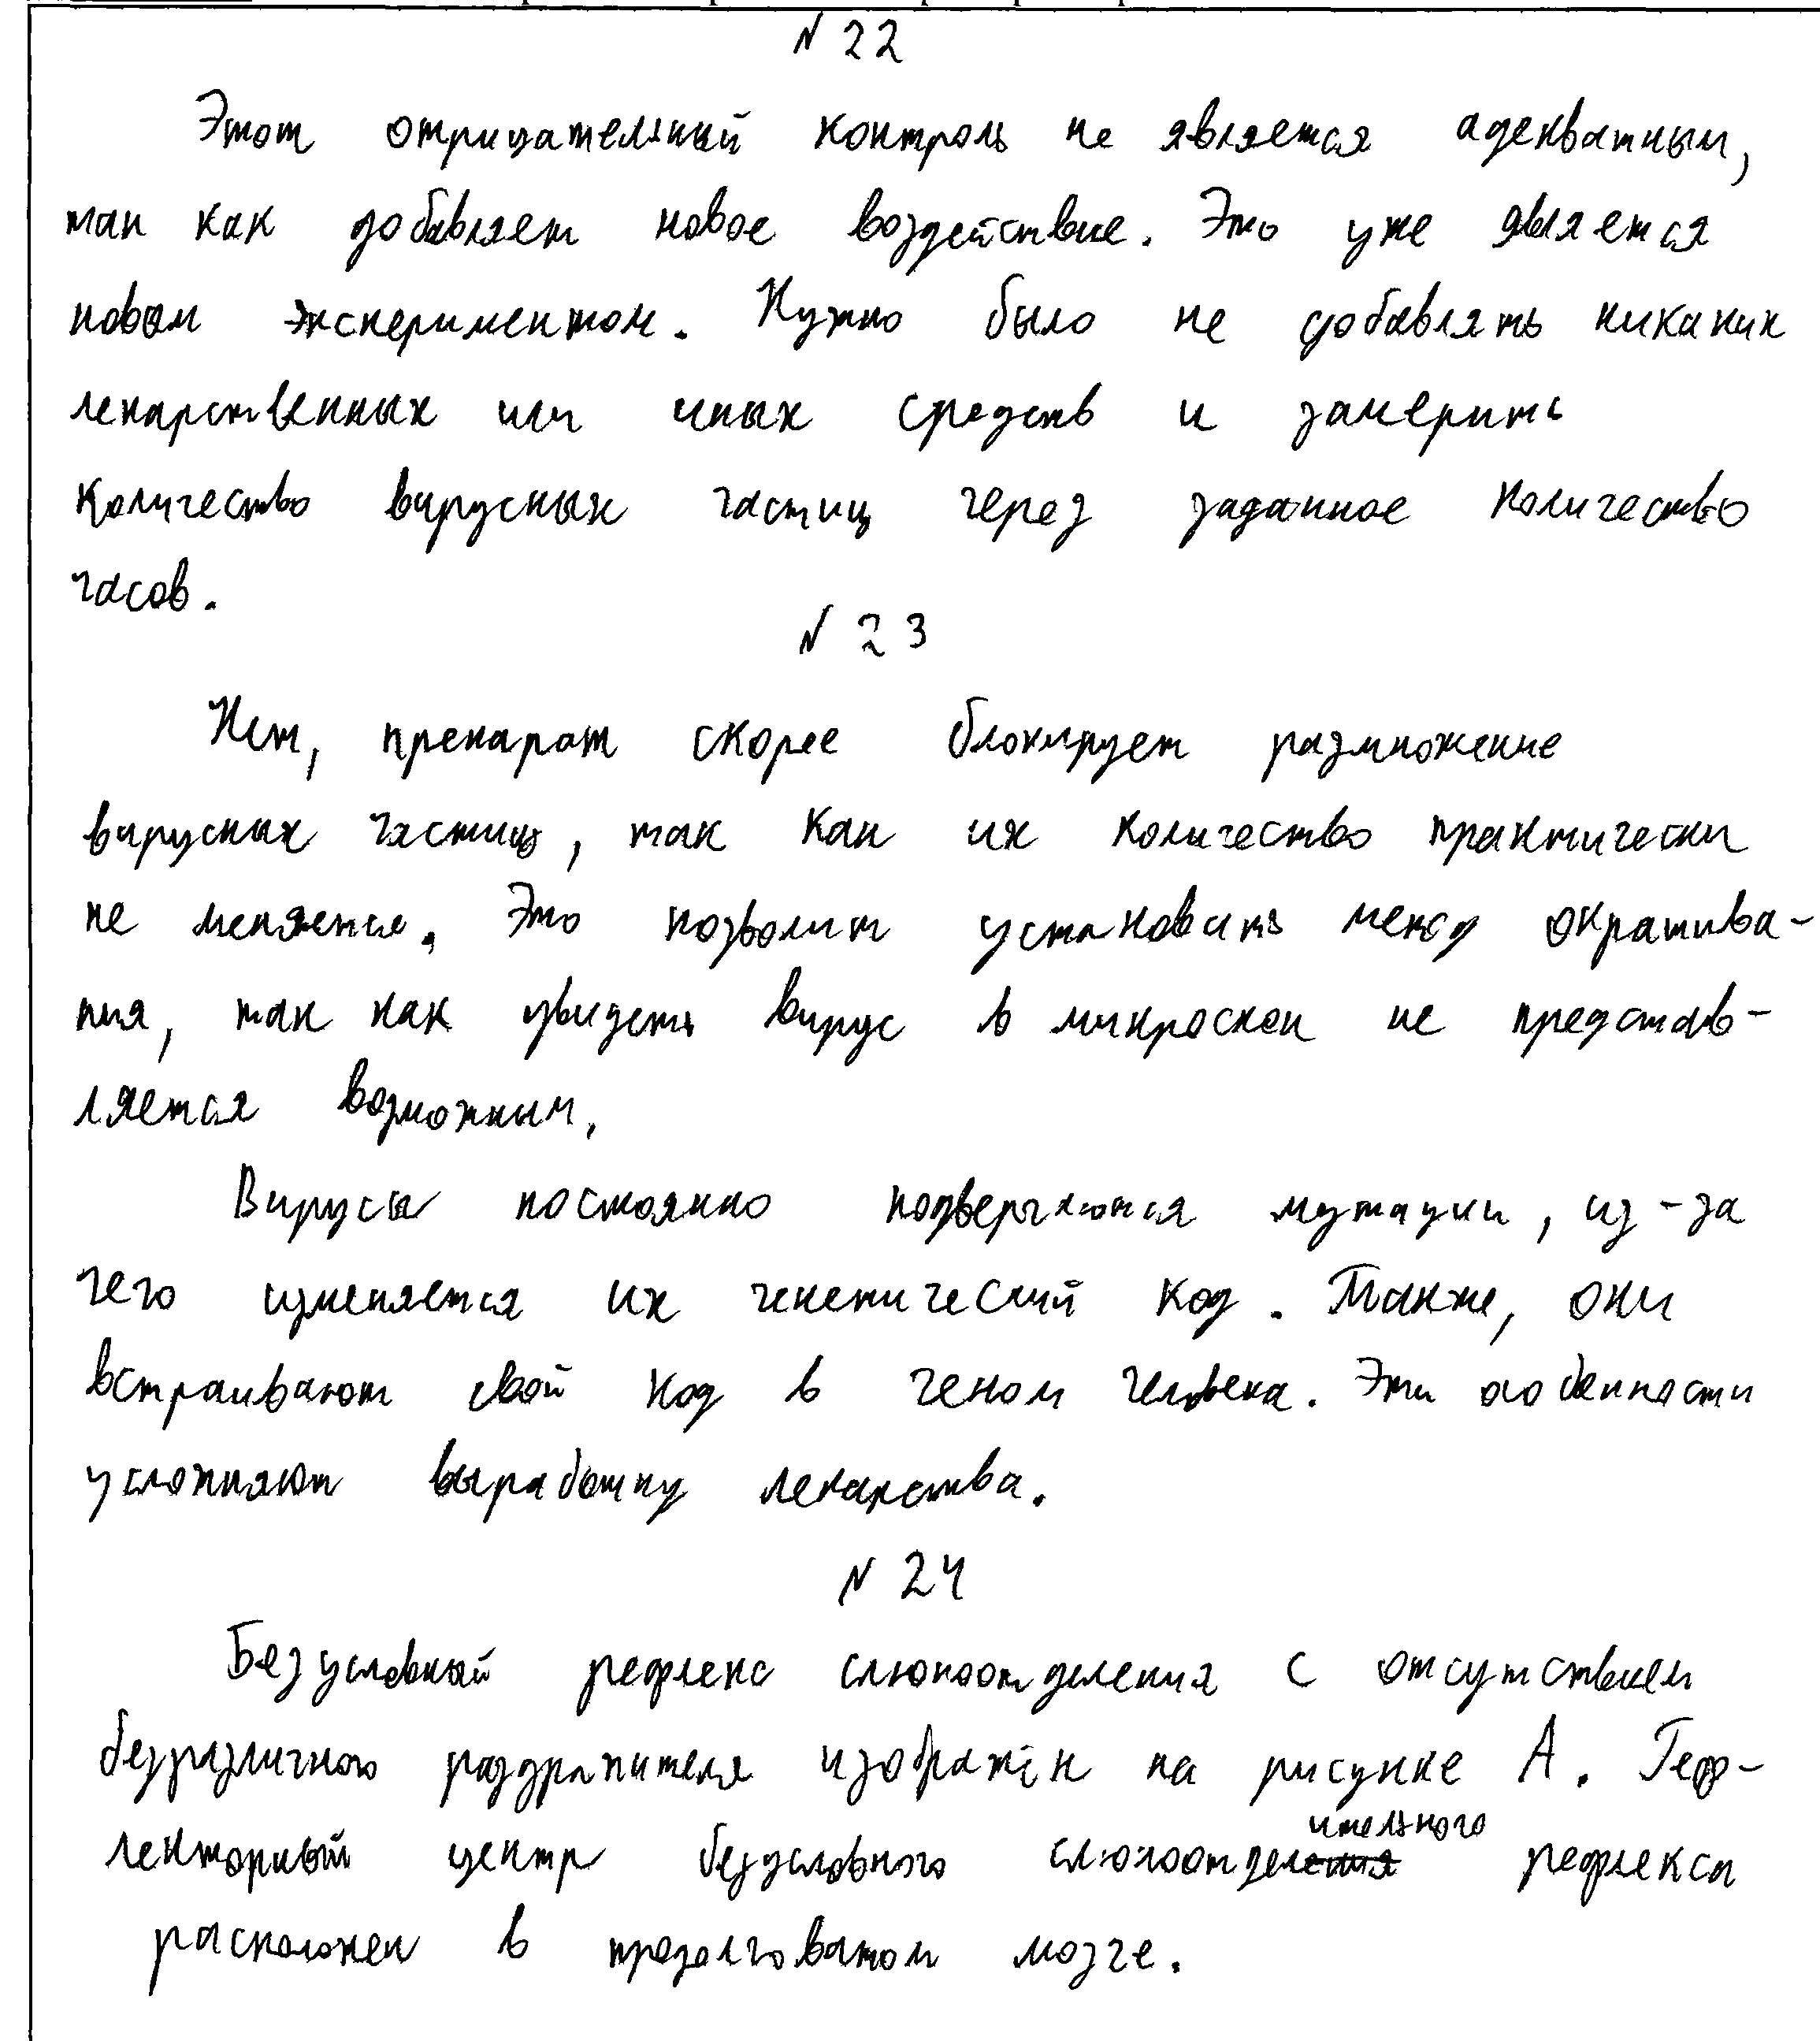 № 22
Этот отрицательный контроль не является адекватным,
так как добавляет новое воздействие. Это уже является
новом экспериментом. Нужно было не добавлять никаких
лекарственных или иных средств и замерить
количество вирусных частиц через заданное количество
часов.
№ 23
Нет, препарат скорее блокирует размножение
вирусных частиц, так как их количество практически
не меняется. Это позволит установить метод окрашива-
ния, так как увидеть вирус в микроскоп не представ-
ляется возможным.
Вирусы постоянно подвергаются мутации, из-за
чего изменяется их генетический код. Также, они
встраивают свой код в геном человека. Эти особенности
усложняют выработку лекарства.
№ 24
Безусловный рефлекс слюноотделения с отсутствием
безразличного раздражителя изображён на рисунке А. Реф-
лекторный центр безусловного слюноотделительного рефлекса
расположен в продолговатом мозге.